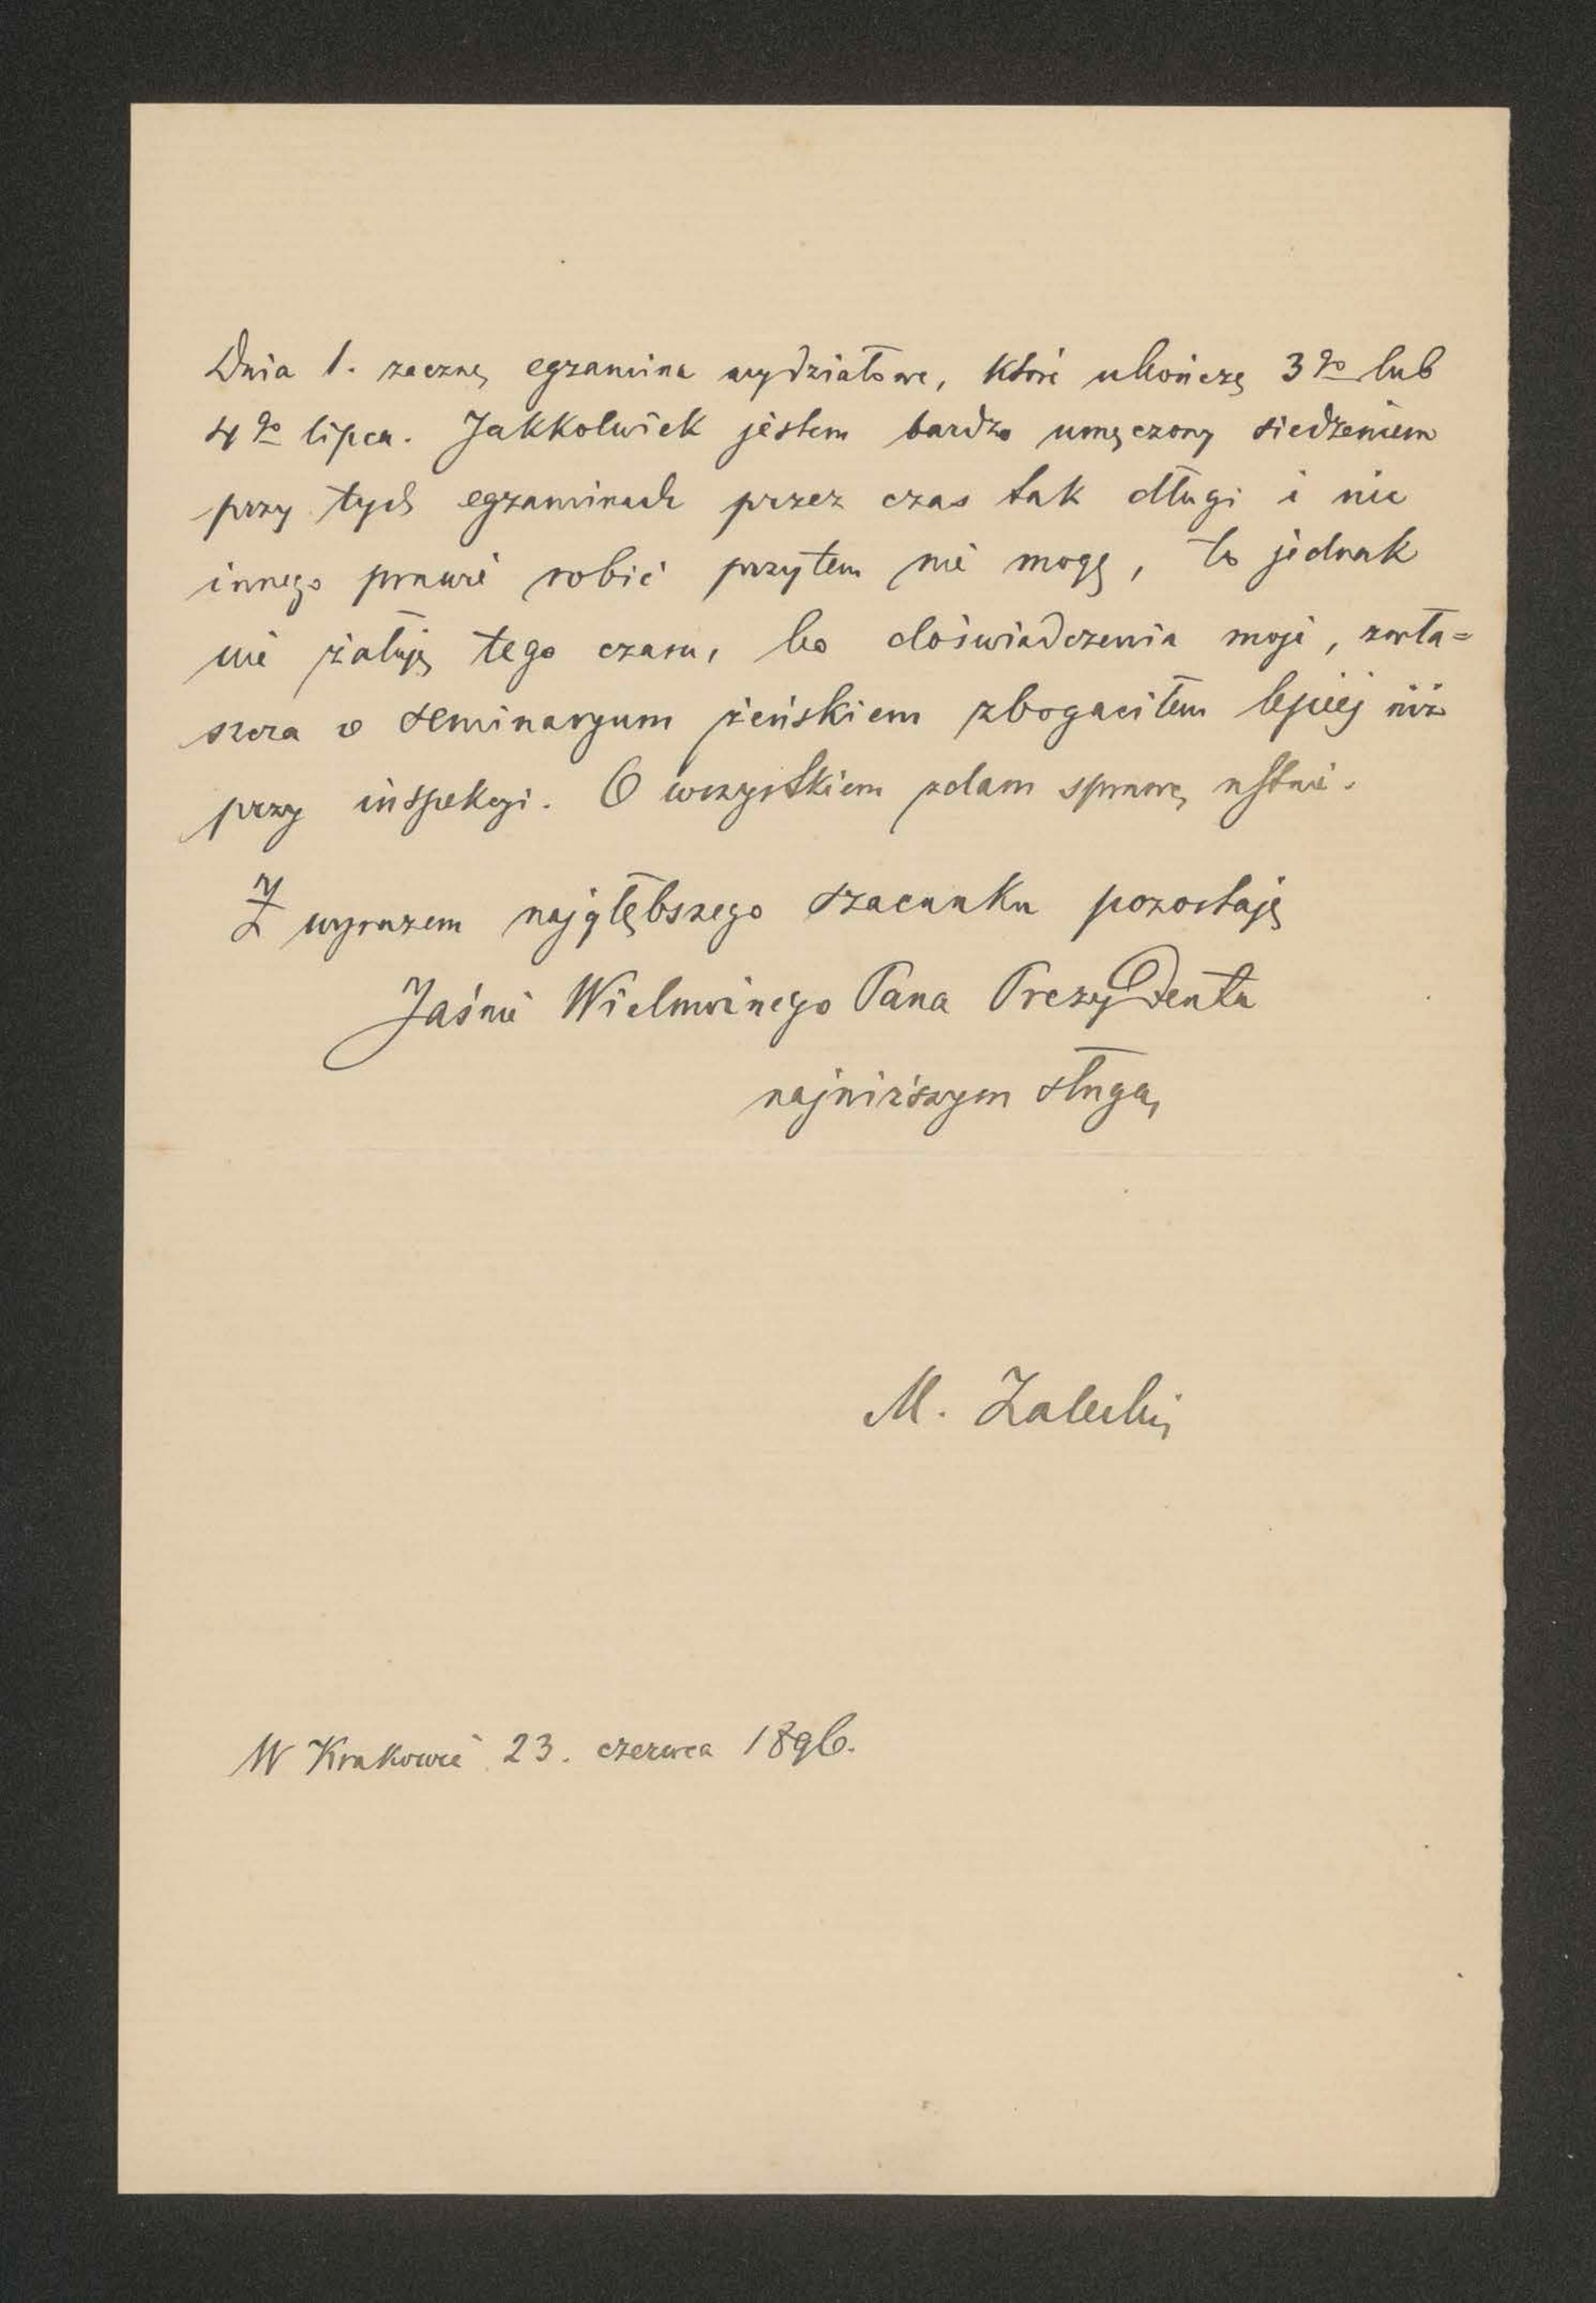 Dnia 1. zacznę egzamina wydziałowe, które ukończę 3go lub
4go lipca. Jakkolwiek jestem bardzo umęczony siedzeniem
przy tych egzaminach przez czas tak długi i nic
innego prawie robić przytem nie mogę, to jednak
nie żałuję tego czasu, bo doświadczenia moje, zwła=
szcza o seminaryum żeńskiem zbogaciłem lepiej niż
przy inspekcyi. O wszystkiem zdam sprawę ustnie.
Z wyrazem najgłębszego szacunku pozostaję
Jaśnie Wielmożnego Pana Prezydenta
najniższym sługą
M. Zaleski
W Krakowie 23. czerwca 1896.